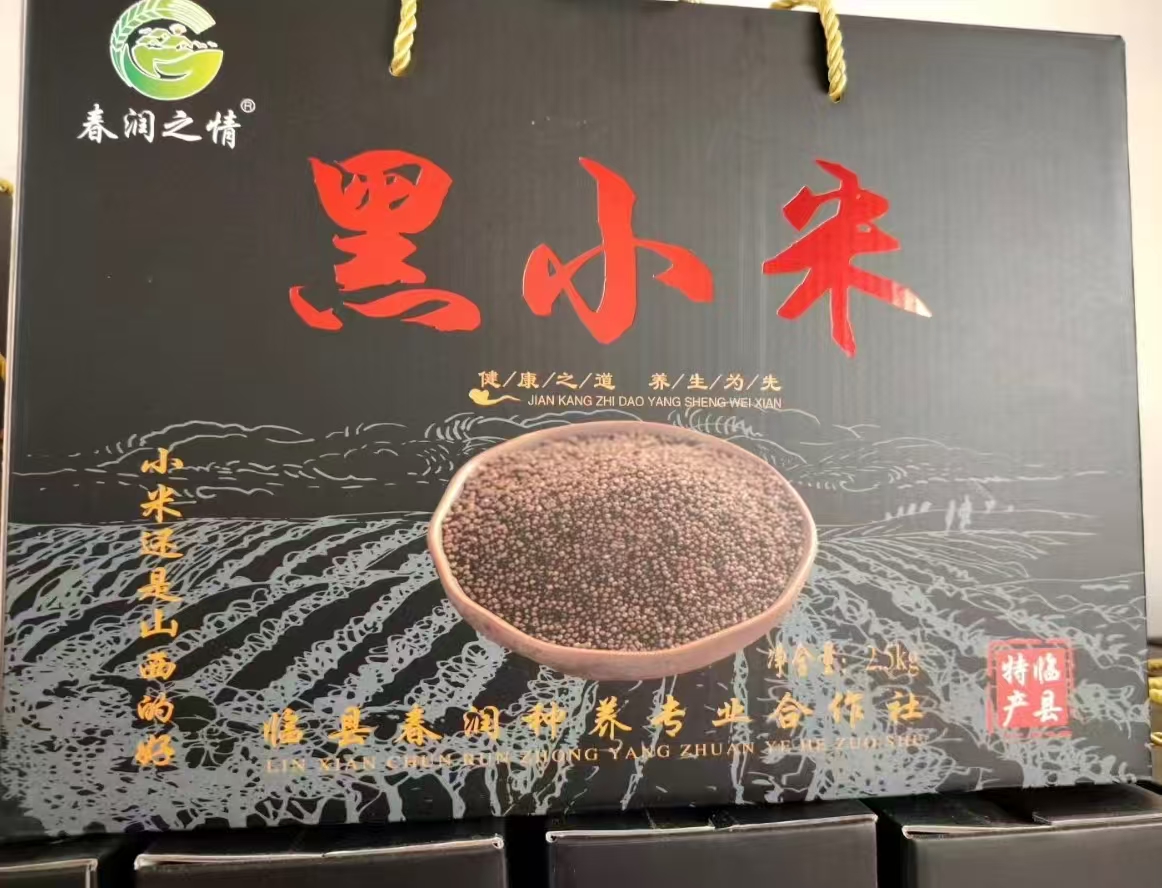 春润之情®
黑小米
健/康/之/道 养/生/为/先
JIAN KANG ZHI DAO YANG SHENG WEI XIAN
小米还是山西的好
净含量：2.5kg
临县特产
临县春润种养专业合作社
LIN XIAN CHUN RUN ZHONG YANG ZHUAN YE HE ZUO SHE